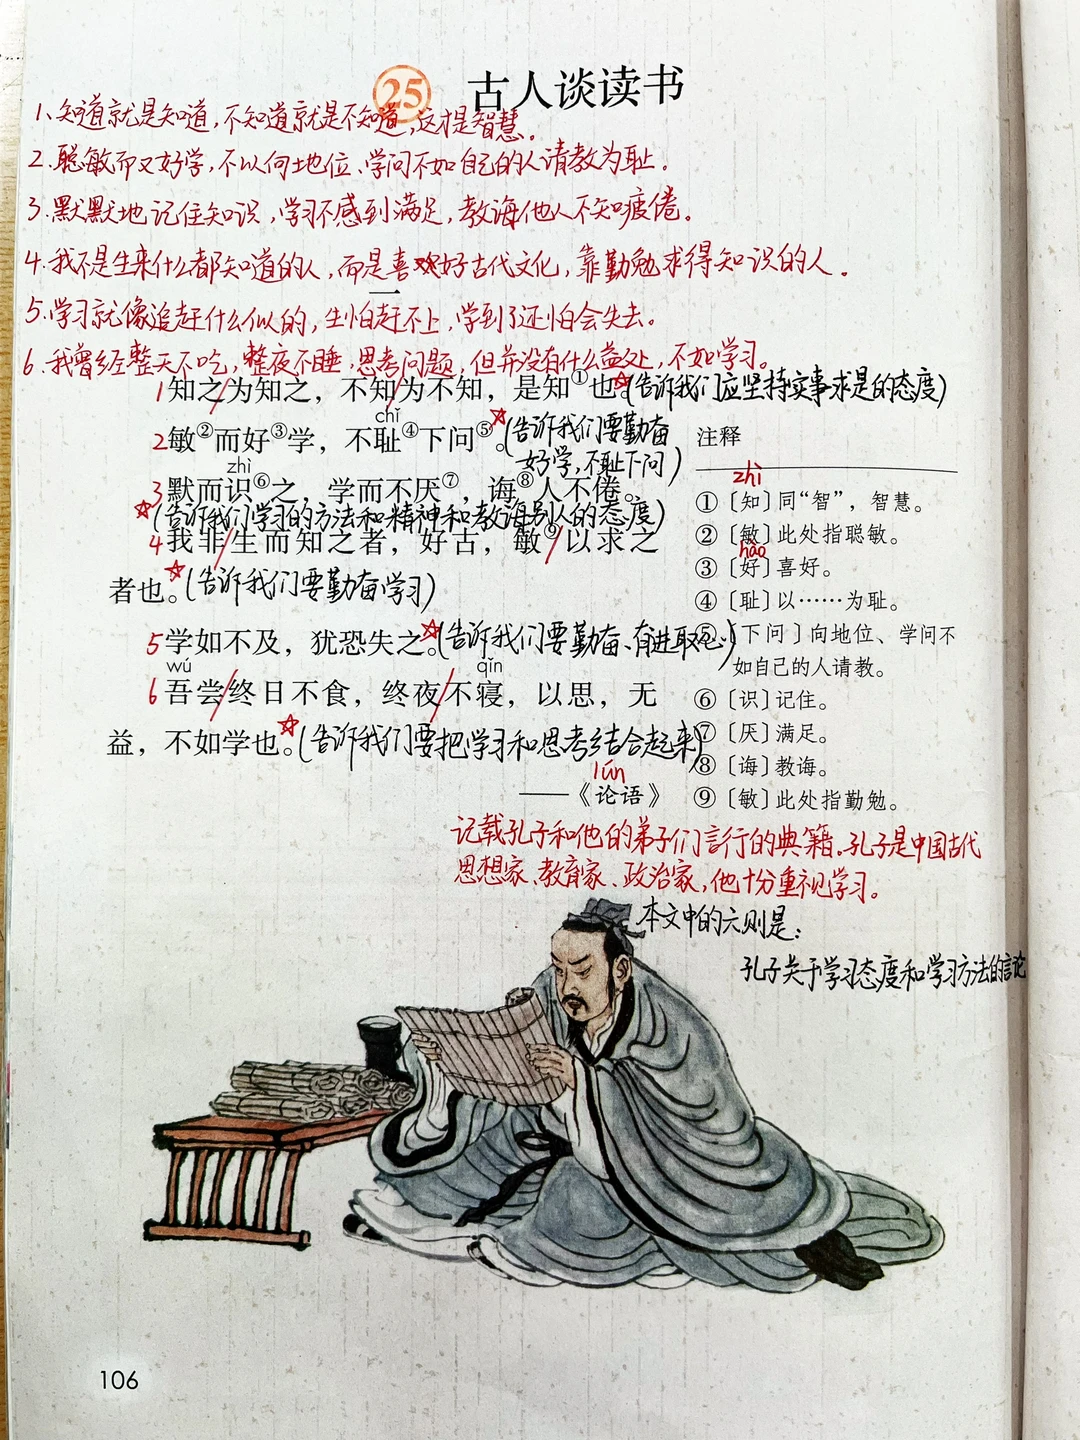 25 古人谈读书
1、知道就是知道，不知道就是不知道，这才是智慧。
2.聪敏而又好学，不以向地位、学问不如自己的人请教为耻。
3.默默地记住知识，学习不感到满足，教诲他人不知疲倦。
4.我不是生来什么都知道的人，而是喜好古代文化，靠勤勉求得知识的人。
一
5.学习就像追赶什么似的，生怕赶不上，学到了还怕会失去。
6.我曾经整天不吃，整夜不睡，思考问题，但并没有什么益处，不如学习。
1知之/为知之，不知/为不知，是知①也。☆(告诉我们应坚持实事求是的态度)
chǐ
2敏②而好③学，不耻④下问⑤。☆(告诉我们要勤奋
好学，不耻下问)
zhì
3默而识⑥之，学而不厌⑦，诲⑧人不倦。
☆(告诉我们学习的方法和精神和教诲别人的态度)
4我非/生而知之者，好古，敏⑨/以求之
者也。☆(告诉我们要勤奋学习)
5学如不及，犹恐失之。☆(告诉我们要勤奋、有进取心)
wú qǐn
6吾尝/终日不食，终夜/不寝，以思，无
益，不如学也。☆(告诉我们要把学习和思考结合起来)
lún
——《论语》
注释
zhì
①〔知〕同“智”，智慧。
②〔敏〕此处指聪敏。
hào
③〔好〕喜好。
④〔耻〕以……为耻。
⑤〔下问〕向地位、学问不
如自己的人请教。
⑥〔识〕记住。
⑦〔厌〕满足。
⑧〔诲〕教诲。
⑨〔敏〕此处指勤勉。
记载孔子和他的弟子们言行的典籍。孔子是中国古代
思想家、教育家、政治家，他十分重视学习。
本文中的六则是：
孔子关于学习态度和学习方法的言论
106